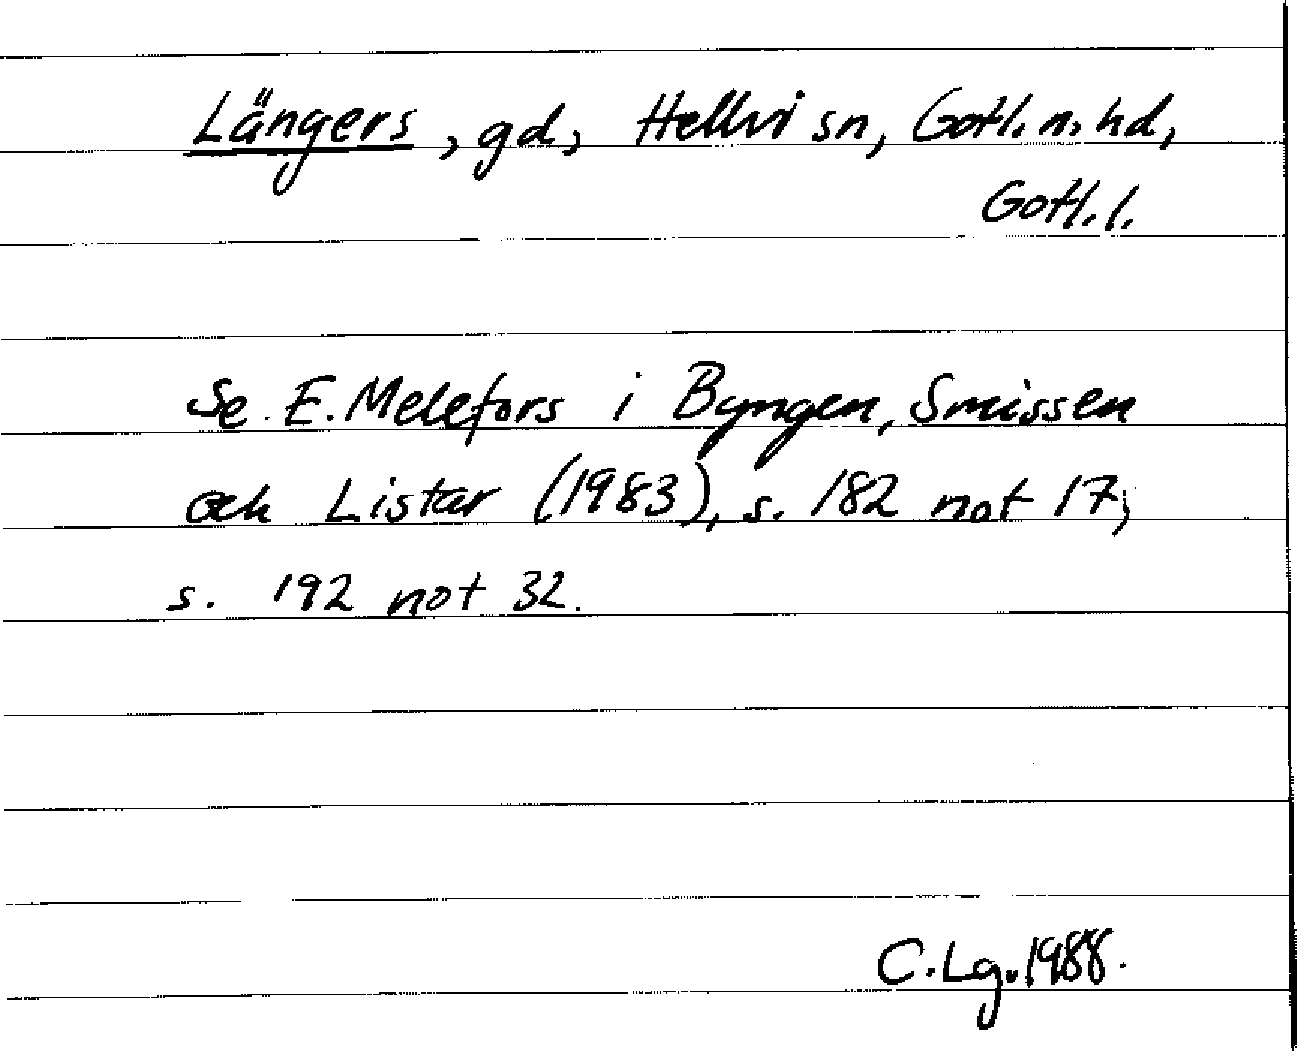 Längers, gd, Hellvi sn, Gotl. n. hd,
Gotl. l.
Se E. Melefors i Byngen, Smissen
och Listar (1983), s. 182 not 17;
s. 192 not 32.
C. Lg. 1988.